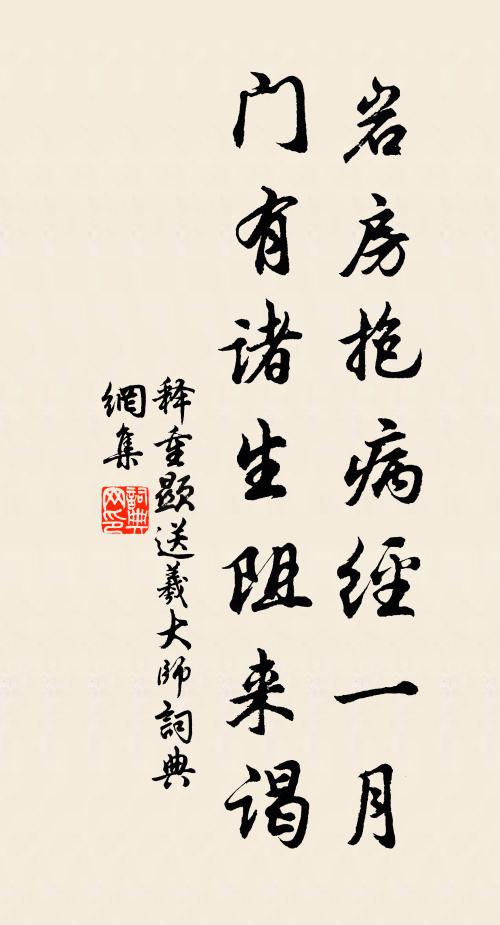 岩房抱病經一月
门有诸生阻来谒
释重顯送羲大師詞典
網集
詞典
网印